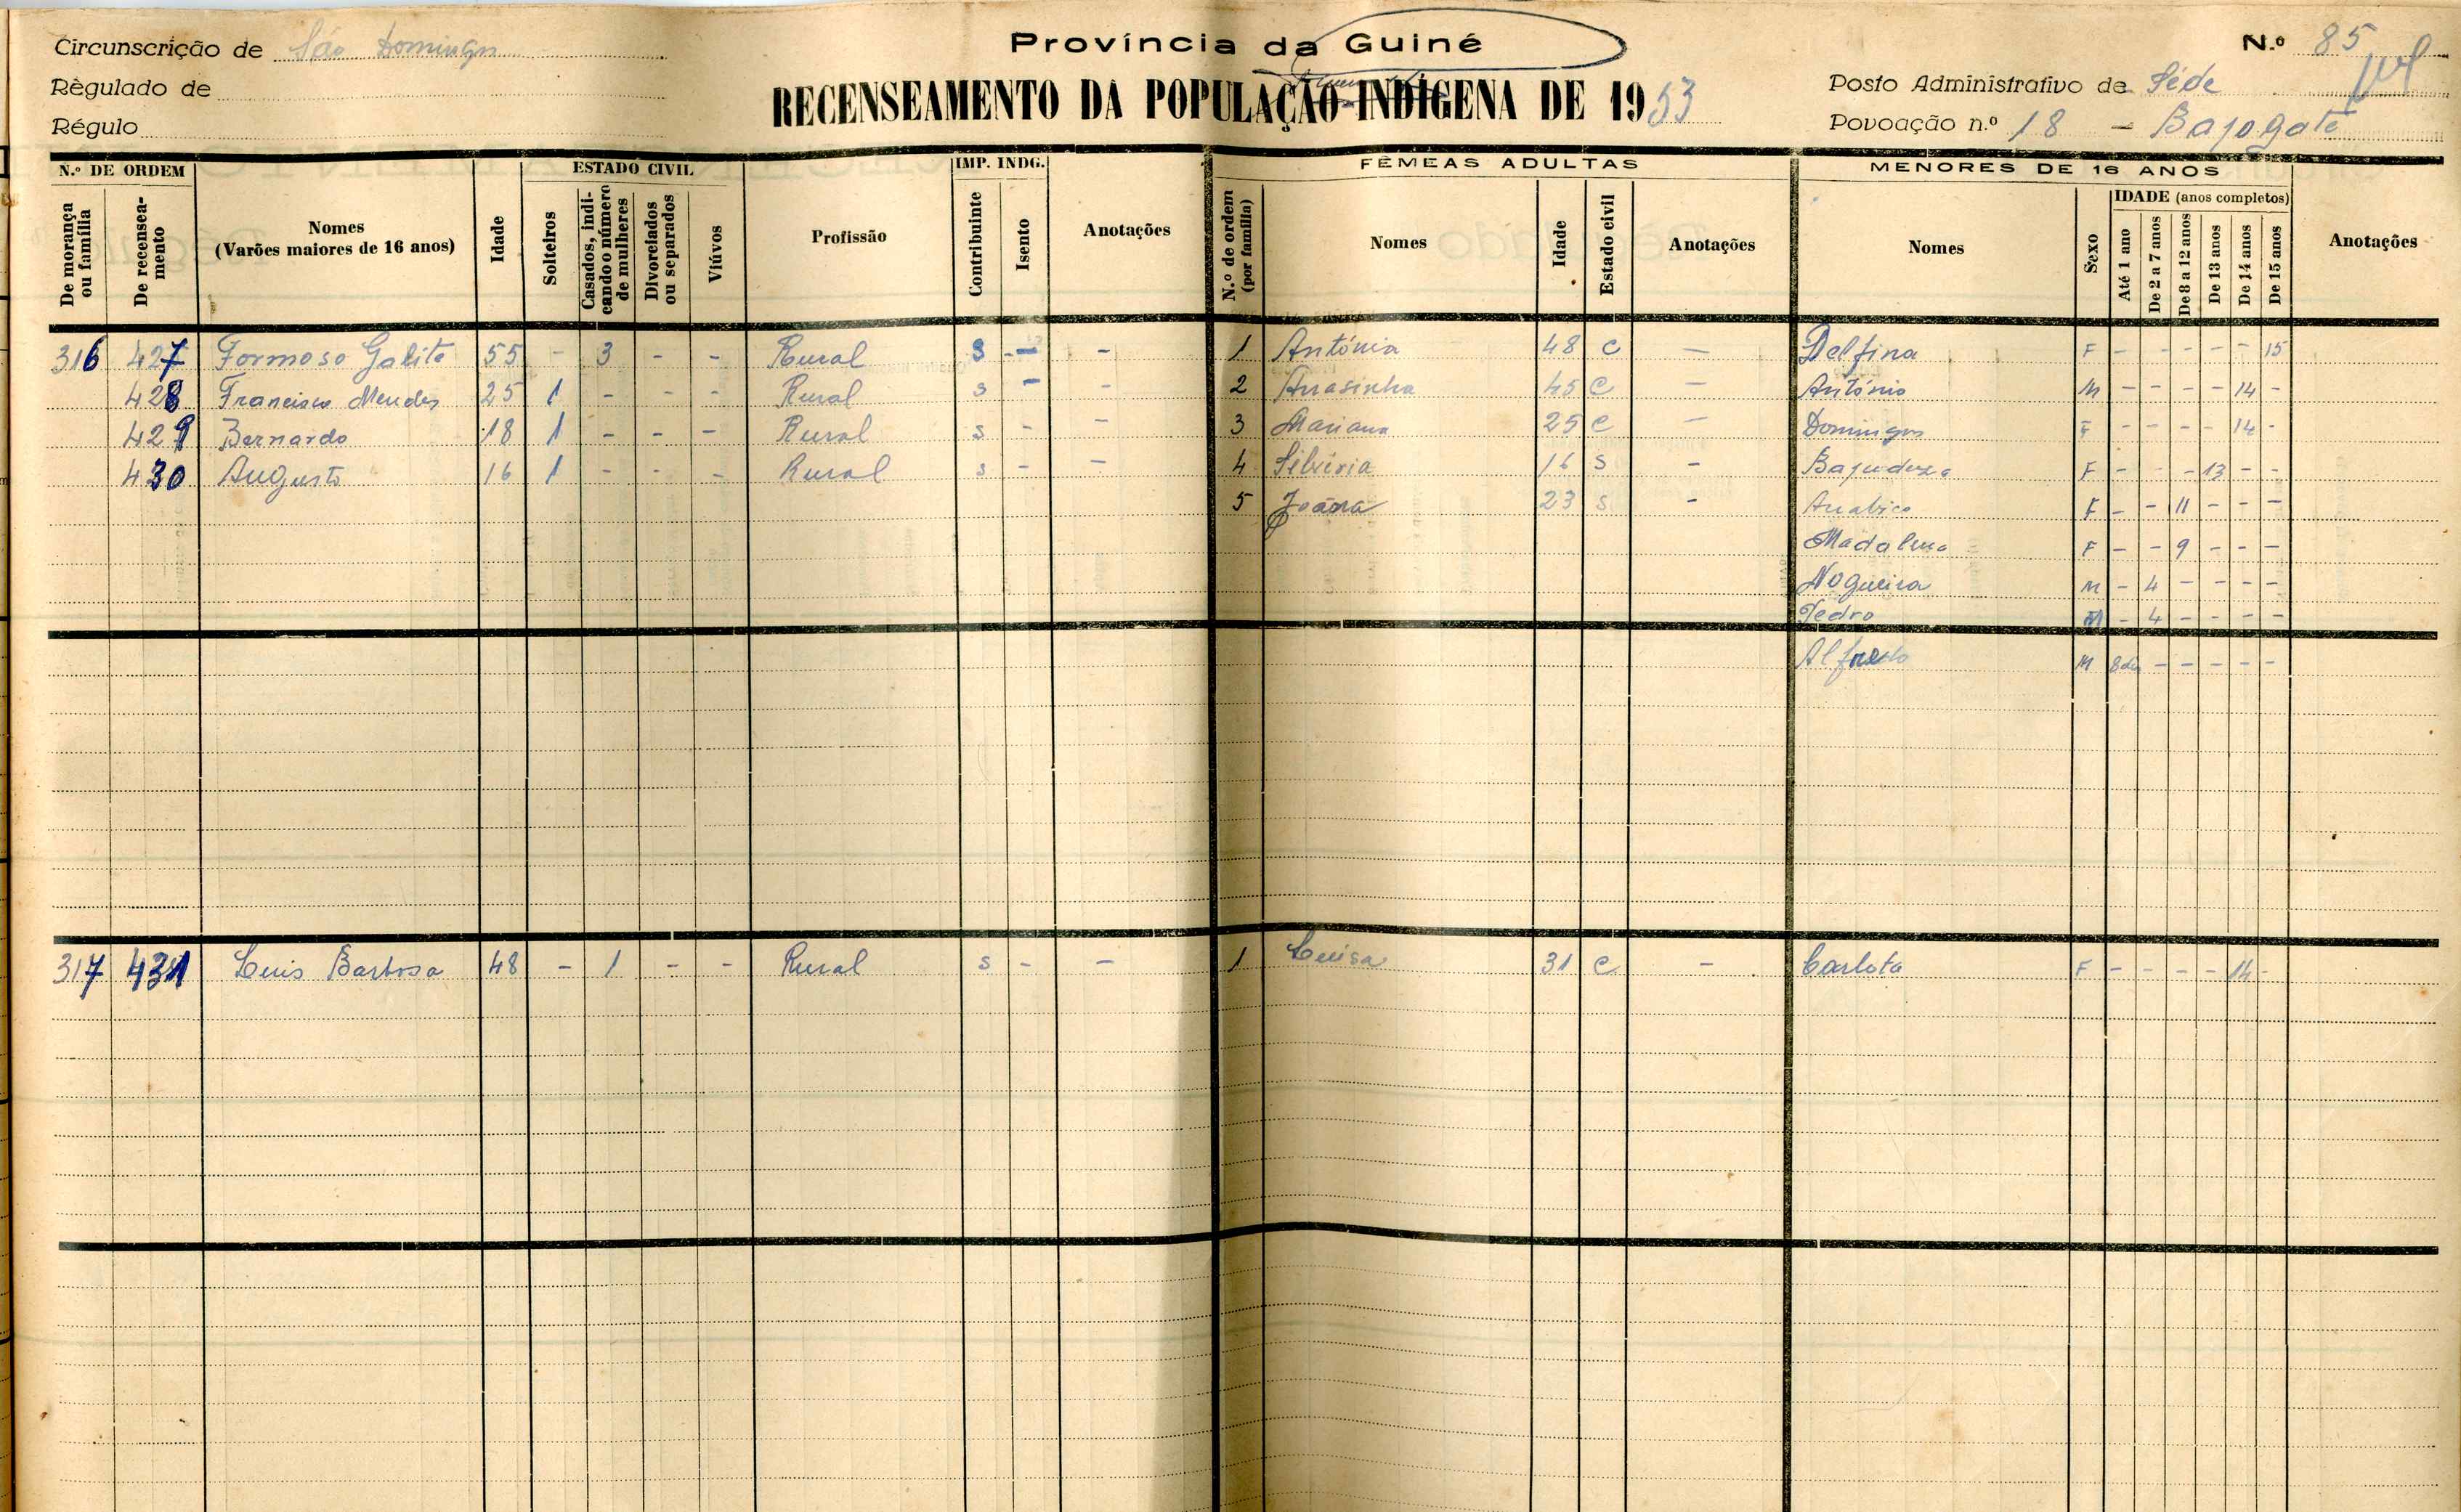 Província da Guiné
N.º 85
Circunscrição de São Domingos
Règulado de
Régulo
RECENSEAMENTO DA POPULAÇÃO INDÍGENA DE 1953
Posto Administrativo de Séde
Povoação n.º 18 - Bajogate
N.º DE ORDEM
De morança ou família
De recensea-mento
Nomes
(Varões maiores de 16 anos)
Idade
ESTADO CIVIL
Solteiros
Casados, indi-cando o número de mulheres
Divorciados ou separados
Viúvos
Profissão
IMP. INDG.
Contribuinte
Isento
Anotações
FÊMEAS ADULTAS
N.º de ordem (por família)
Nomes
Idade
Estado civil
Anotações
MENORES DE 16 ANOS
Nomes
Sexo
IDADE (anos completos)
Até 1 ano
De 2 a 7 anos
De 8 a 12 anos
De 13 anos
De 14 anos
De 15 anos
Anotações
316 427 Formoso Galite 55 - 3 - - Rural S - - 1 Antónia 48 C - Delfina F - - - - - 15
428 Francisco Mendes 25 1 - - - Rural S - - 2 Anasinha 45 C - António M - - - - 14 -
429 Bernardo 18 1 - - - Rural S - - 3 Mariana 25 C - Domingas F - - - - 14 -
430 Augusto 16 1 - - - Rural S - - 4 Silvéria 16 S - F - - - 13 - -
5 Joana 23 S - F - - 11 - - -
Madalena F - - 9 - - -
Nogueira M - 4 - - - -
Pedro M - 4 - - - -
Alfredo M - - - - -
317 431 Luis Barbosa 48 - 1 - - Rural S - - 1 Luisa 31 C - Carlota F - - - - 14 -